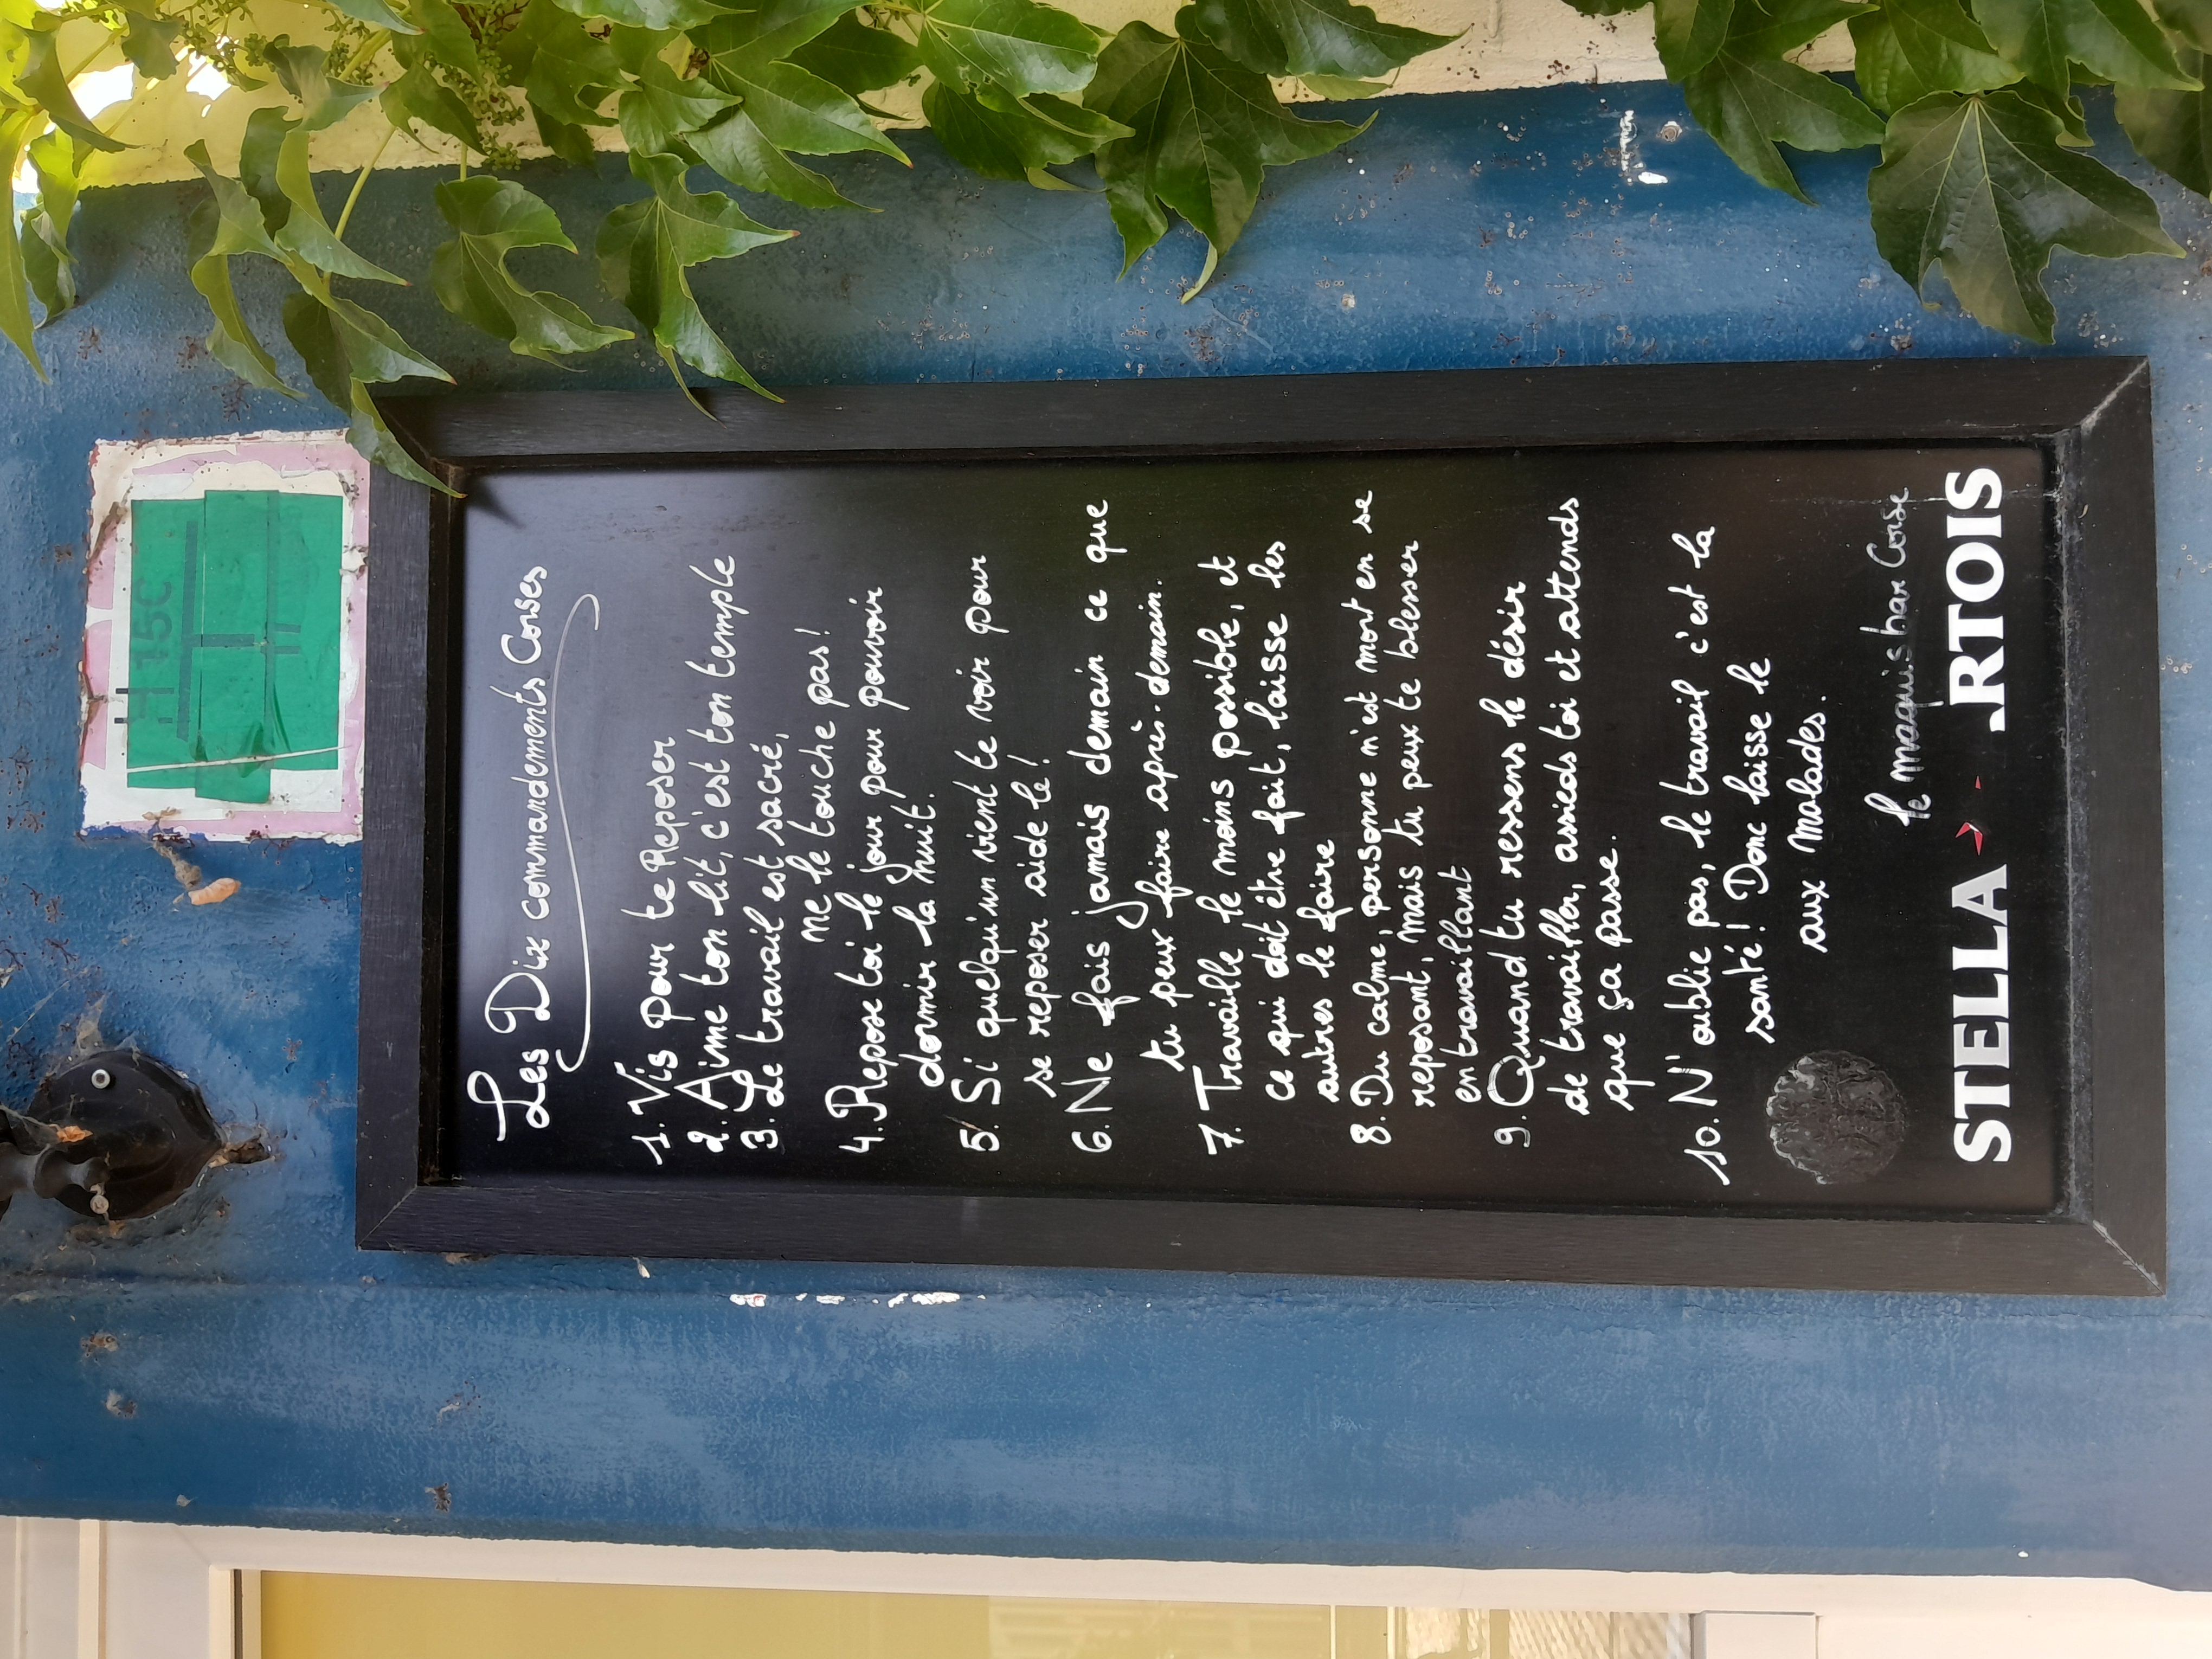 H 150
Les Dix commandements Corses
1. Vis pour te Reposer
2. Aime ton lit, c'est ton temple
3. Le travail est sacré,
ne le touche pas!
4. Repose toi le jour pour pouvoir
dormir la nuit.
5. Si quelqu'un vient te voir pour
se reposer aide le!
6. Ne fais jamais demain ce que
tu peux faire après-demain.
7. Travaille le moins possible, et
ce qui doit être fait, laisse les
autres le faire
8. Du calme, personne n'est mort en se
reposant, mais tu peux te blesser
en travaillant
9. Quand tu ressens le désir
de travailler, assieds toi et attends
que ça passe.
10. N'oublie pas, le travail c'est la
santé! Donc laisse le
aux malades.
le maquis bar Corse
STELLA RTOIS